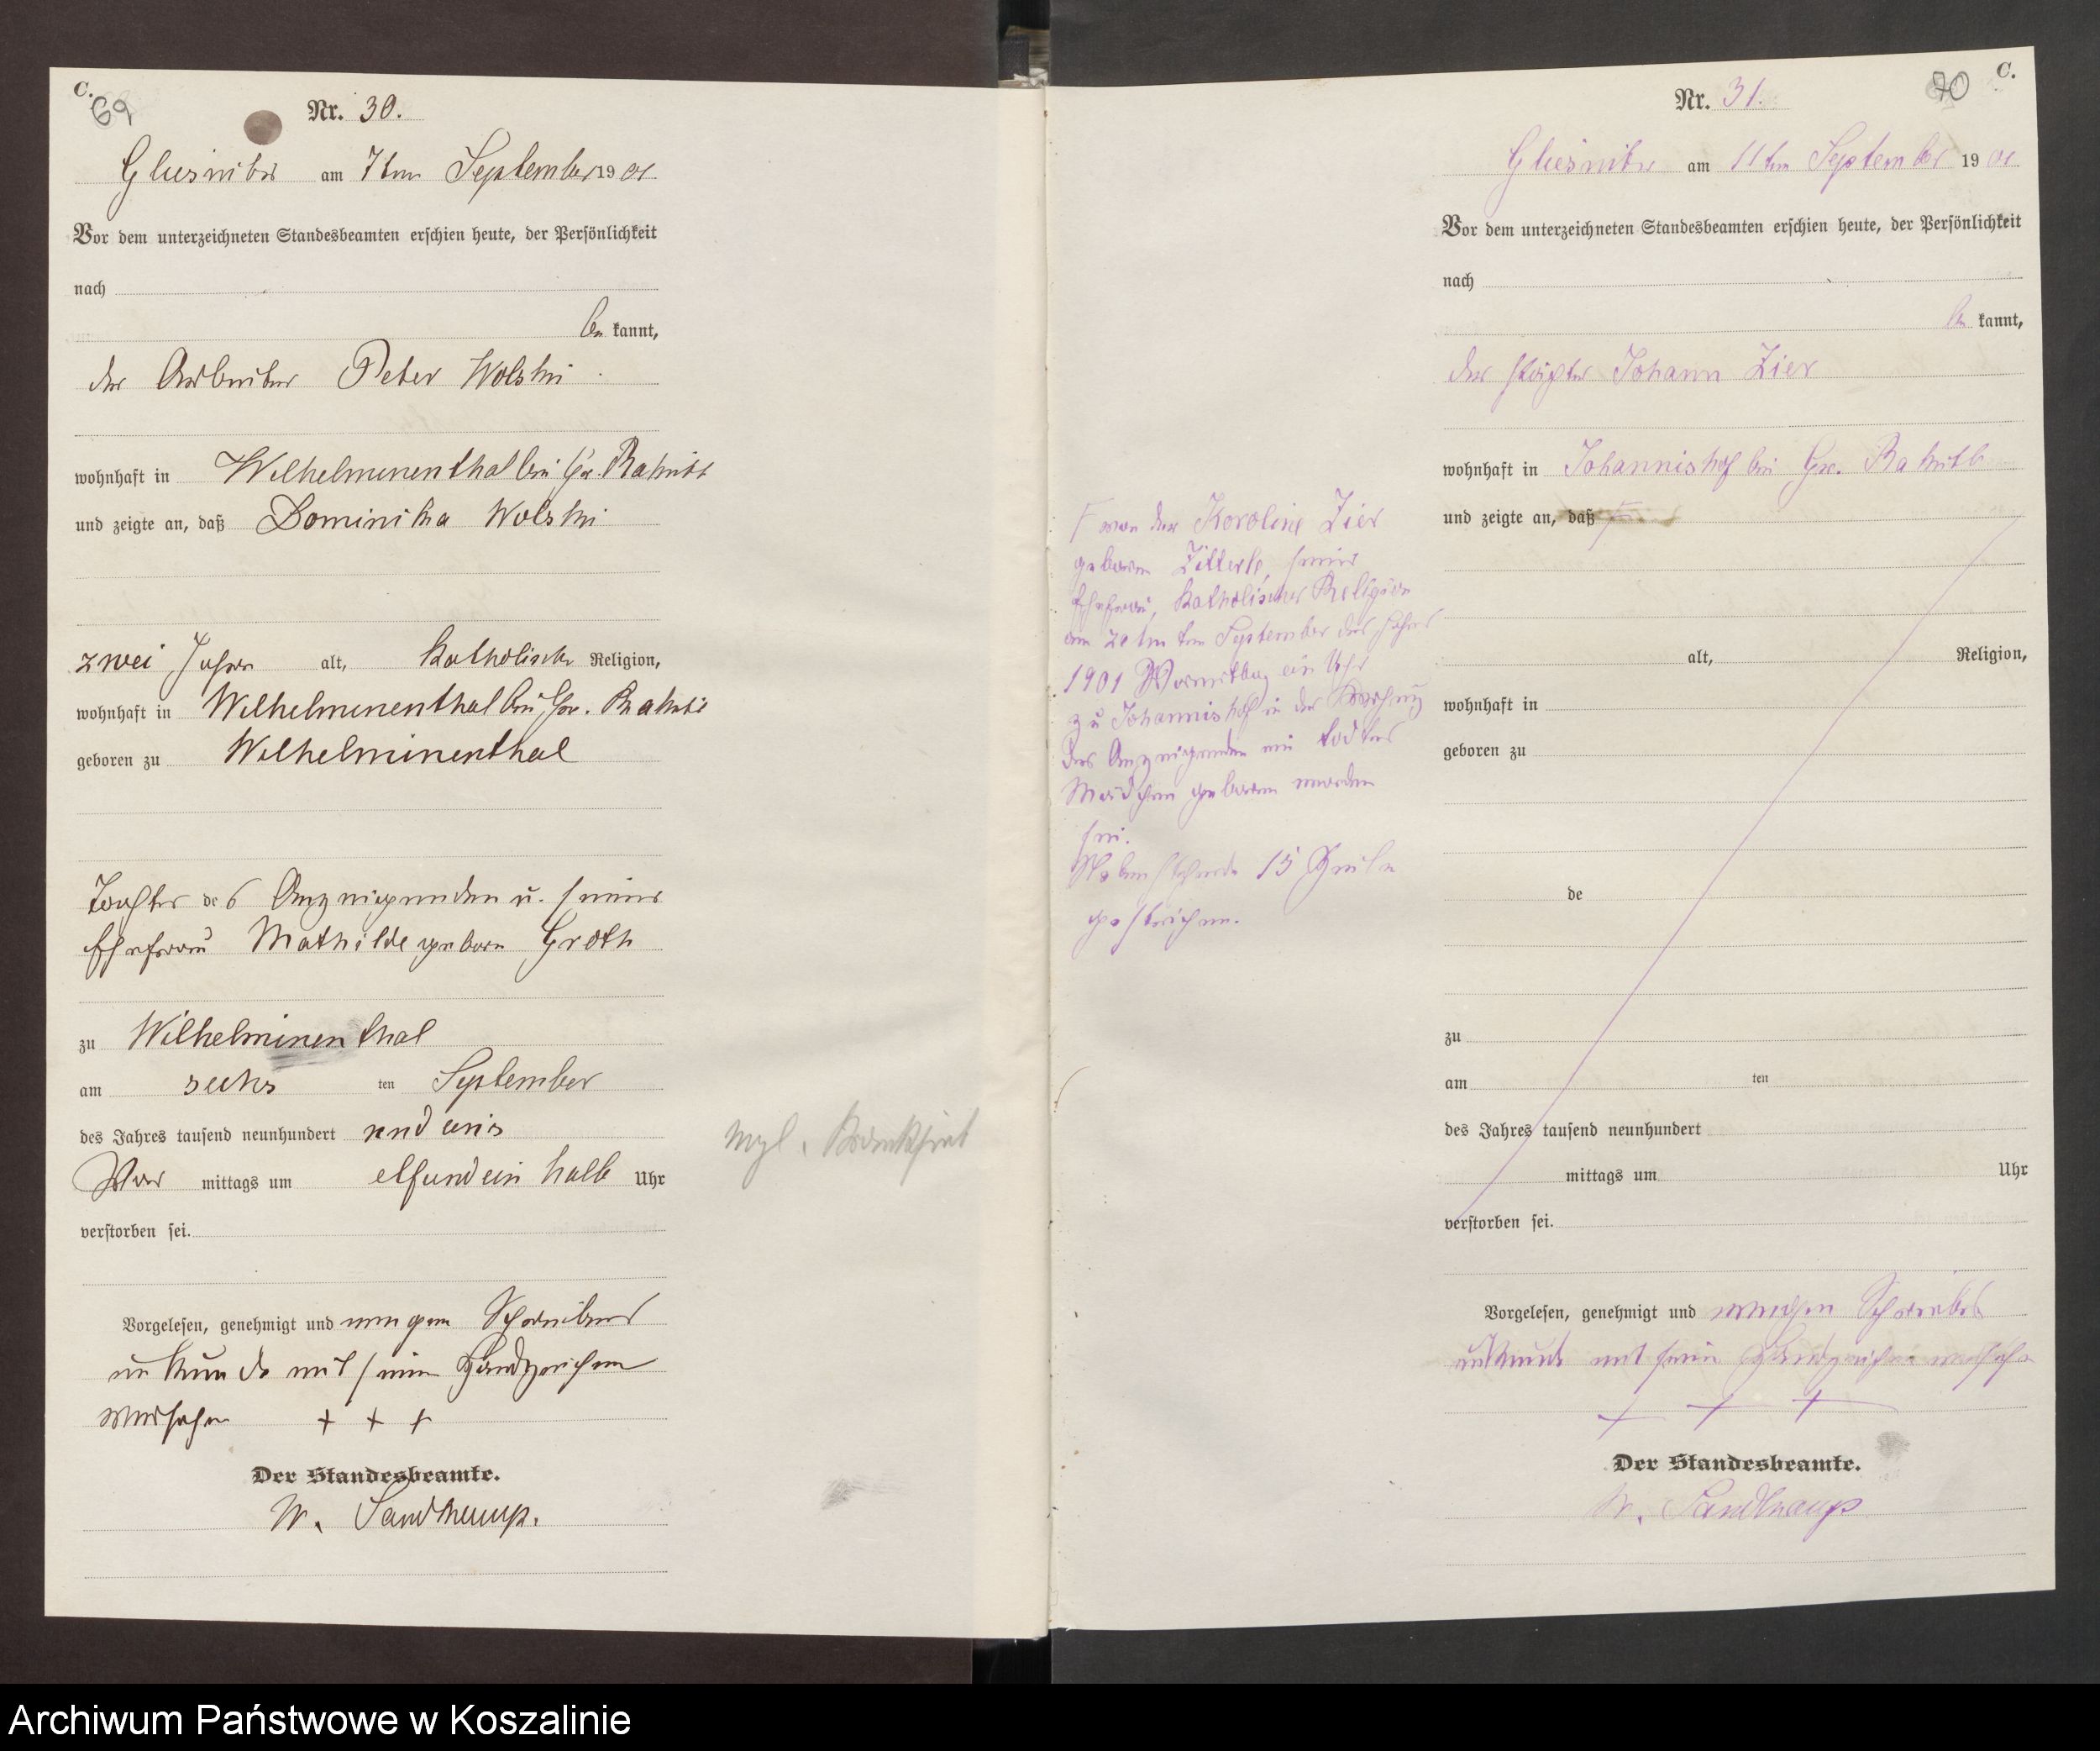 C.
69
Nr. 30.
am 7ten September 1901
Vor dem unterzeichneten Standesbeamten erschien heute, der Persönlichkeit
nach
be kannt,
der Arbeiter Peter Wolski
wohnhaft in Wilhelminenthal bei Gr. Rakitt
und zeigte an, daß Dominika Wolski
zwei Jahre alt, katholischer Religion,
wohnhaft in Wilhelminenthal bei Gr. Rakitt
geboren zu Wilhelminenthal
Tochter des Anzeigenden u. seiner
Ehefrau Mathilde geboren Groth
zu Wilhelminenthal
am sechs ten September
des Jahres tausend neunhundert und eins
Vor mittags um elfundein halb Uhr
verstorben sei.
Vorgelesen, genehmigt und wegen Schreibens
unkunde mit seinen Handzeichen
versehen + + +
Der Standesbeamte.
W. Sandkamp.
Krankheit
C.
70
Nr. 31.
am 11ten September 1901
Vor dem unterzeichneten Standesbeamten erschien heute, der Persönlichkeit
nach
be kannt,
der Johann Zier
wohnhaft in Johannishof bei Gr. Rakitt
und zeigte an, daß
alt, Religion,
wohnhaft in
geboren zu
de
zu
am ten
des Jahres tausend neunhundert
mittags um Uhr
verstorben sei.
von der Karoline Zier
geboren seiner
Ehefrau, katholischer Religion
am ten September des Jahres
1901 Vormittag ein Uhr
zu Johannishof in der Wohnung
des Anzeigenden ein todtes
Mädchen geboren worden
sei.
Nebenstehende 15 Zeilen
gestrichen.
Vorgelesen, genehmigt und wegen Schreibens
unkunde mit seinen Handzeichen versehen
+ + +
Der Standesbeamte.
W. Sandkamp
Archiwum Państwowe w Koszalinie